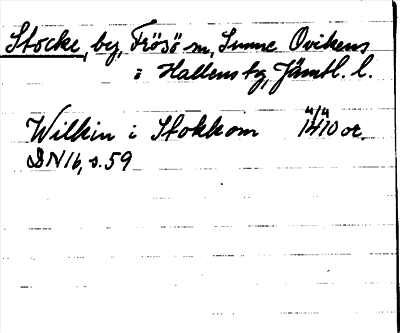 Stocke, by, Frösö sn, Sunne Ovikens
i Hallens tg, Jämtl. l.
Wilkin i Stokkom 14/4 1410 or.
DN 16, s. 59